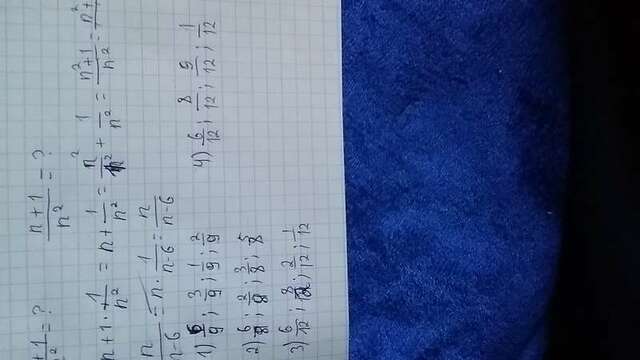 +1/n² = ? (n+1)/n² = ?
n+1 · 1/n² = n + 1/n² = n²/n² + 1/n² = (n²+1)/n² = n²+
n/(n-6) = n · 1/(n-6) = n/(n-6)
1) 6/9; 3/9; 1/9; 2/9
2) 6/8; 2/8; 3/8; 5/8
3) 6/12; 8/12; 2/12; 1/12
4) 6/12; 8/12; 9/12; 1/12